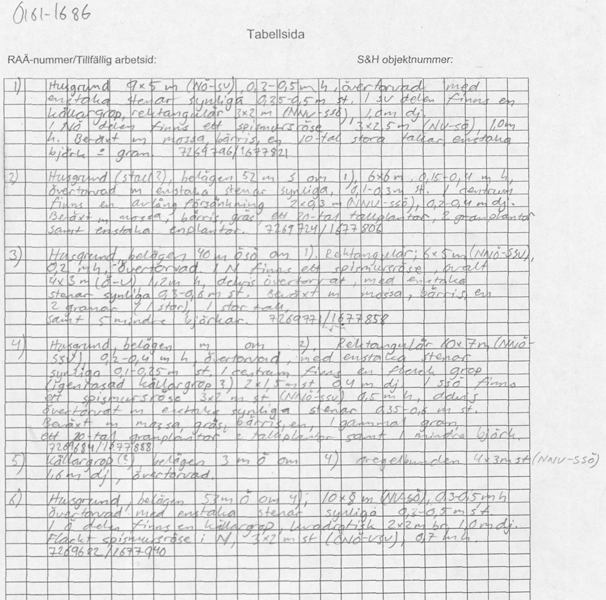 0161-1686
Tabellsida
RAÄ-nummer/Tillfällig arbetsid: S&H objektnummer:
1) Husgrund 9x5 m (NÖ-SV), 0,2-0,5 m h, övertorvad med
enstaka stenar synliga 0,35-0,5 m st. I SV delen finns en
källargrop, rektangulär 3x2 m (NNV-SSÖ) 1,0 m dj.
I NÖ delen finns ett spismursröse, 3x2,5 m (NV-SÖ), 1,0 m
h. Beväxt m mossa, bärris, en 10-tal stora tallar, enstaka
björk o gran. 7269796/1677821
2) Husgrund (stall?), belägen 52 m S om 1), 6x6 m, 0,15-0,4 m h,
övertorvad m enstaka stenar synliga, 0,1-0,3 m st. I centrum
finns en avlång försänkning 2x0,3 m (NNV-SSÖ), 0,2-0,4 m dj.
Beväxt m mossa, bärris, gräs, ett 20-tal tallplantor, 2 granplantor
samt enstaka enplantor. 7269724/1677806
3) Husgrund, belägen 40 m ÖSÖ om 1). Rektangulär; 6x5 m (NNÖ-SSV),
0,2 m h, övertorvad. I N finns ett spismursröse, ovalt
4x3 m (Ö-V) 1,2 m h, delvis övertorvat, med enstaka
stenar synliga 0,3-0,6 m st. Beväxt m mossa, bärris, en
2 granar (1 stor) 1 stor tall,
samt 5 mindre björkar. 7269771/1677858
4) Husgrund, belägen m om 2), Rektangulär 10x7 m (NNÖ-
SSV) 0,2-0,4 m h, övertorvad, med enstaka stenar
synliga 0,1-0,25 m st, I centrum finns en flack grop
(igenrasad källargrop?) 2x1,5 m st, 0,4 m dj. I SSÖ finns
ett spismursröse 3x2 m st (NNÖ-SSV) 0,5 m h, delvis
övertorvat m enstaka synliga stenar 0,35-0,6 m st.
Beväxt m mossa, gräs, bärris, en, 1 gammal gran,
ett 20-tal granplantor o tallplantor samt 1 mindre björk.
7269684/1677888
5) Källargrop (?), belägen 3 m Ö om 4) oregelbunden 4x3 m st (NNV-SSÖ)
1,6 m dj, övertorvad.
6) Husgrund, belägen 53 m Ö om 4); 10x8 m (NV-SÖ), 0,3-0,5 m h
övertorvad med enstaka stenar synliga 0,2-0,5 m st.
I Ö delen finns en källargrop, kvadratisk 2x2 m br, 1,0 m dj.
Flackt spismursröse i N, 3x2 m st (ÖNÖ-VSV), 0,7 m h.
7269682/1677940